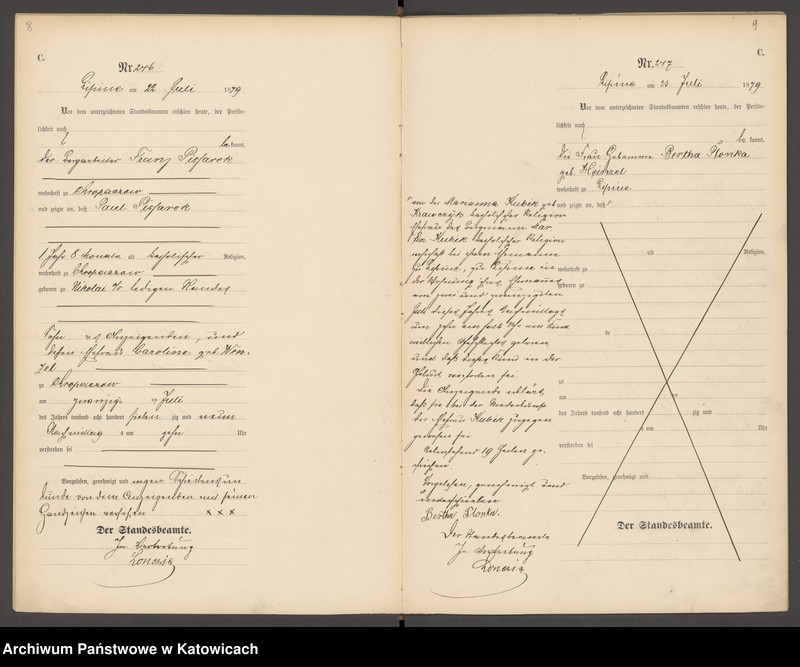 8
C.
Nr. 246
Lipine am 22 Juli 1879
Vor dem unterzeichneten Standesbeamten erschien heute, der Persön-
lichkeit nach
be kannt,
der Bergarbeiter Franz Pissarek
wohnhaft zu Chropaczow
und zeigte an, daß Paul Pissarek
1 Jahr 8 Monate alt katholischer Religion,
wohnhaft zu Chropaczow
geboren zu Nikolai ledigen Standes
Sohn des Anzeigenden, und
dessen Ehefrau Caroline geb.
zu Chropaczow
am zwanzigsten Juli
des Jahres tausend acht hundert sieben zig und neun
Nachmittag s um zehn Uhr
verstorben sei
Vorgelesen, genehmigt und wegen
von dem Anzeigenden mit seinen
Handzeichen versehen x x x
Der Standesbeamte.
In Vertretung
9
C.
Nr. 247
Lipine am 23 Juli 1879
Vor dem unterzeichneten Standesbeamten erschien heute, der Persön-
lichkeit nach
be kannt,
die Frau Hebamme Bertha Plonka
geb.
wohnhaft zu Lipine
und zeigte an, daß
von der Marianna Kubek geb
Krawczyk katholischer Religion
Ehefrau des Bergmann Mar
tin Kubek katholischer Religion
wohnhaft bei ihrem Ehemanne
zu Lipine, zu Lipine in
der Wohnung ihres Ehemannes
am zwei und zwanzigsten
Juli dieses Jahres Nachmittags
um zehn ein halb Uhr ein Kind
weiblichen Geschlechts geboren
und daß dieses Kind in der
Geburt verstorben sei
Die Anzeigende erklärt,
daß sie bei der Niederkunft
der Ehefrau Kubek zugegen
gewesen sei
Nebenstehend 19 Zeilen ge-
strichen.
Vorgelesen, genehmigt und
unterschrieben
Bertha Plonka.
Der Standesbeamte
In Vertretung
alt Religion,
wohnhaft zu
geboren zu
de
zu
am ten
des Jahres tausend acht hundert zig und
um Uhr
verstorben sei
Vorgelesen, genehmigt und
Der Standesbeamte.
Archiwum Państwowe w Katowicach